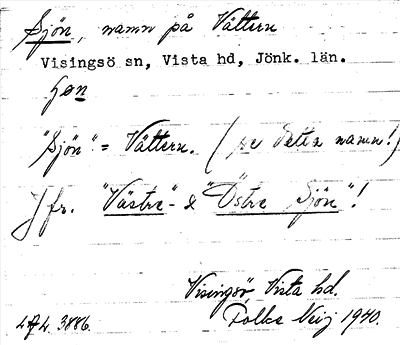 Sjön, namn på Vättern
Visingsö sn, Vista hd, Jönk. län.
"Sjön" = Vättern. (se detta namn!)
Jfr. "Västra"- & "Östra Sjön"!
Visingsö, Vista hd.
3886. 1940.